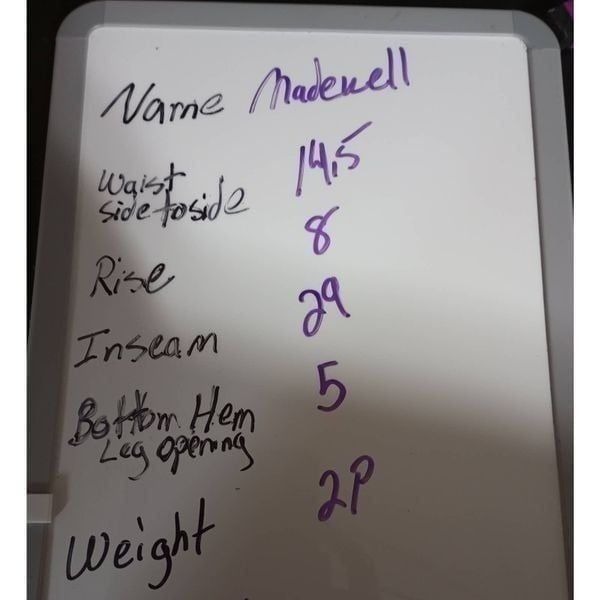 Name Madewell
Waist 14.5
side to side
Rise 8
Inseam 29
Bottom Hem 5
Leg opening
Weight 2P